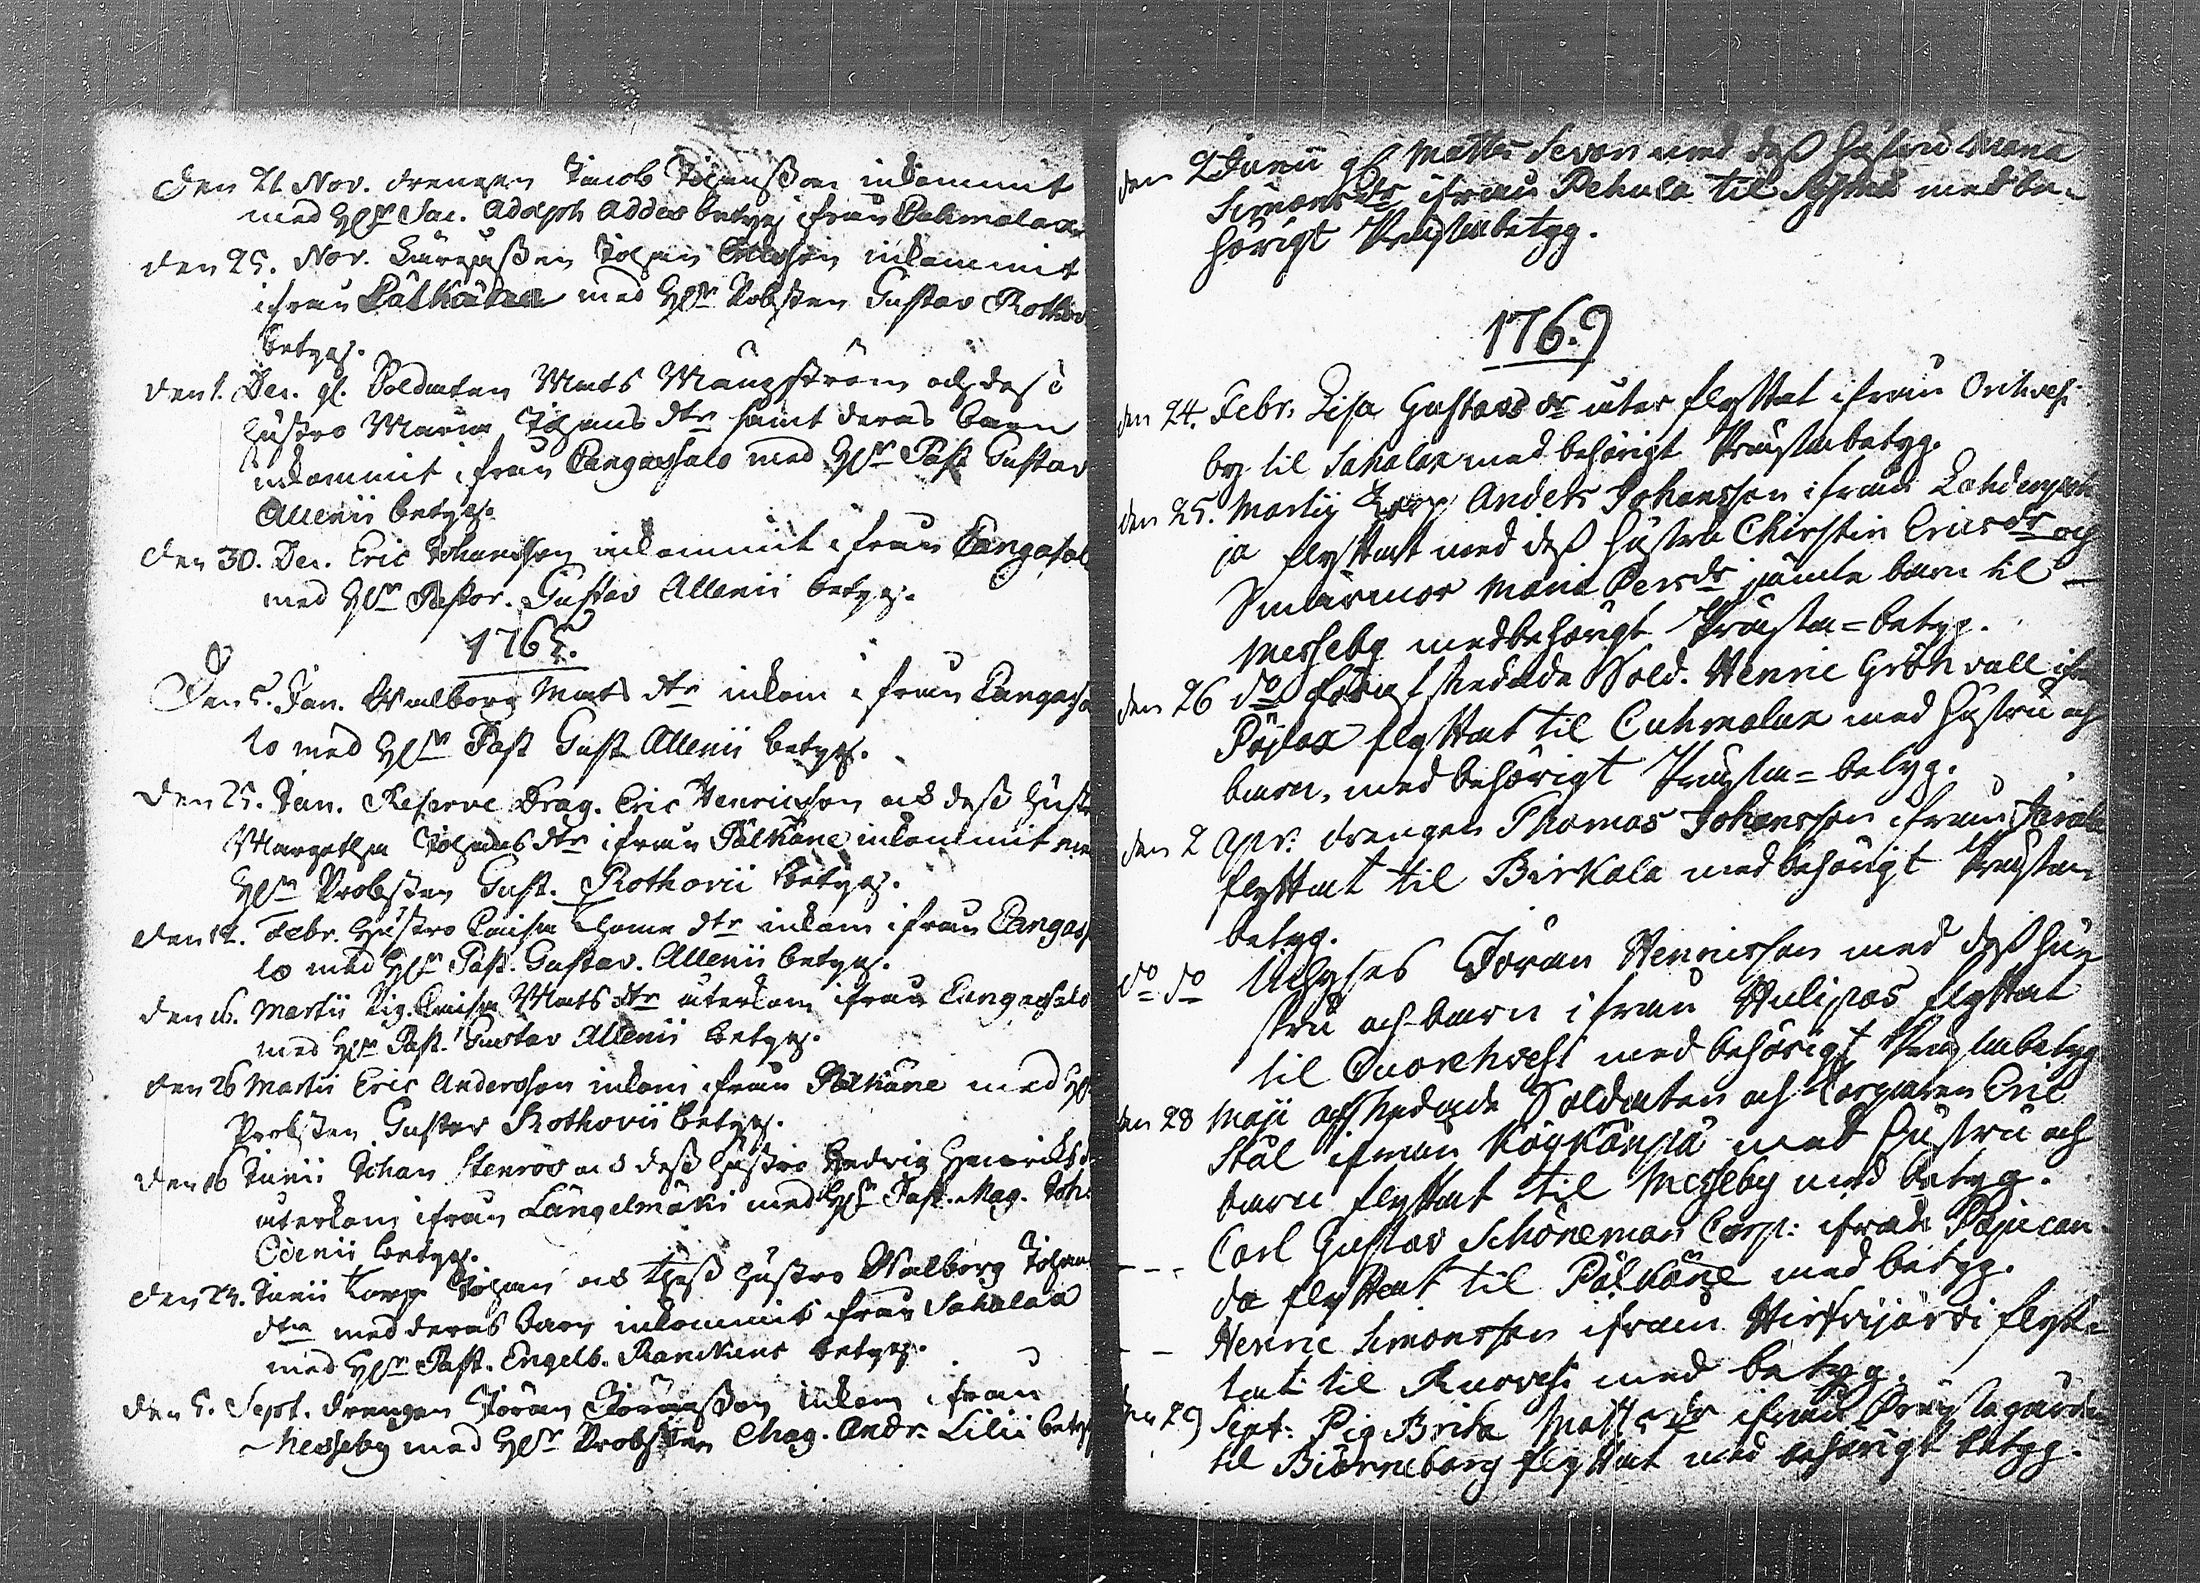 Den 21 Nov. drengen Jacob Johansson inkommit
med H:r Sac. Adolph Addes betyg ifrån
den 25. Nov. Johan inkommit
ifrån Pälkäne med H:r Probsten Gustav Rothov
betyg.
den 1. Dec. gl. Soldaten Mats Mångström och des
hustro Maria Johans dtr samt deras barn
inkommit ifrån Cangasalo med H:r Past Gustav
Allenii betyg.
den 30. Dec. Eric Johansson inkommit ifrån Cangasal
med H:r Pastor. Gustav Allenii betyg.
1765.
Den 5. Jan. Walborg Mats dtr inkom ifrån Cangasa
lo med H:r Past Gust Allenii betyg.
den 25. Jan. Reserve Drag. Eric Henricsson och dess hustr
Margetha Johans dtr ifrån Pälkäne inkommit me
H:r Probsten Gust. Rothovii betyg.
den 12. Febr. Hustro Caisa Thome dtr inkom ifrån Cangas
lo med H:r Past. Gustav. Allenii betyg.
den 16. Martii Pig. Caisa Mats dtr återkom ifrån Cangasalo
med H:r Past. Gustav Allenii betyg.
den 26 Martii Eric Andersson inkom ifrån Pälkäne med H
Probsten Gustav Rothovii betyg.
den 16 Junii Johan Stenroos och dess hustro Hedvig Henricks d
återkom ifrån Längelmäki med H:r Past. Mag. Joh.
betyg.
den 24. Junii Korp Johan och thess hustro Walborg Johan
dtr med deras barn inkommit ifrån Sahalax
med H:r Past. Engelb. Rancken betyg.
den 5. Sept. drengen Jöran Jöransson inkom ifrån
Messeby med H:r Probsten Mag. Andr. Lilii bety
den 2 Junii gl Matts Sevon med dess hustru Maria
Simons dr ifrån Pekula til med be-
hörigt Prästabetyg.
1769
den 24. Febr. Lisa Gustavs dr åter flyttat ifrån Orihvesi
by til Sahalax med behörigt Prästabetyg.
den 25. Martij Korp Anders Johansson ifrån
ja flyttat med dess hustru Chirstin Erics dr och
Swärmor Maria Pers dr jämte barn til
Messeby med behörigt Prästa=betyg.
den 26 d:o afskedade Sold. Henric Grönvall ifr
flyttat til Cuhmalax med hustru och
barn, med behörigt Prästa=betyg.
den 2 Apr: drengen Thomas Johansson ifrån
flyttat til Birkala med behörigt Prästa
betyg.
d:o d:o Jöran Henricsson med dess hus
stru och barn ifrån Hulipas flyttat
til med behörigt Prästabetyg
den 28 Maji afskedade Soldaten och Torparen Eric
Stål ifrån med hustru och
barn flyttat til Messeby med betyg.
- - - Carl Gustav Schöneman Corp: ifrån Pajucan
da flyttat til Pälkäne med betyg.
- - Henric Simonsson ifrån Hirsijärvi flyt=
tat til Ruovesi med betyg.
den 29 Sept: Pig Brita Matts dr ifrån Prästegården
til Biörneborg flyttat med behörigt betyg.